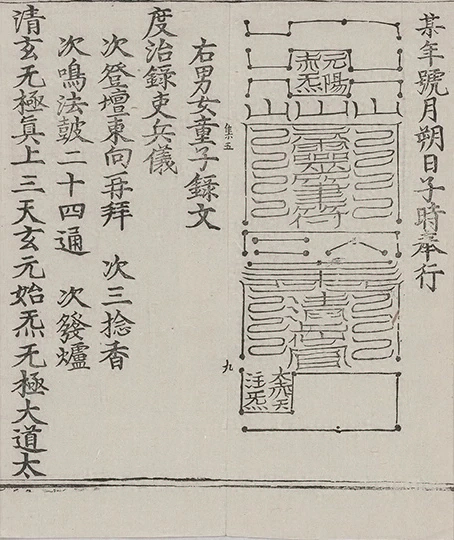 某年號月朔日子時奉行
元陽
赤炁
太天
注炁
右男女童子籙文
集五
九
度治籙吏兵儀
次登壇東向再拜　次三捻香
次鳴法鼓二十四通　次發爐
清玄无極眞上三天玄元始炁无極大道太